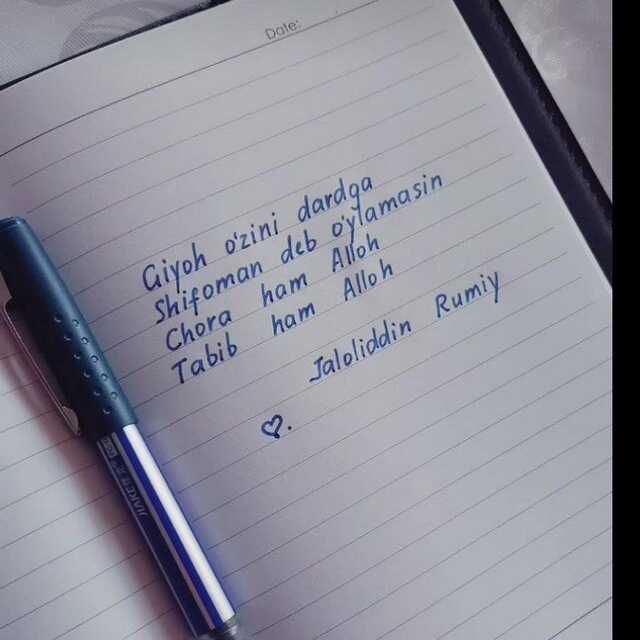 Date:
Giyoh o'zini dardga
Shifoman deb o'ylamasin
Chora ham Alloh
Tabib ham Alloh
Jaloliddin Rumiy